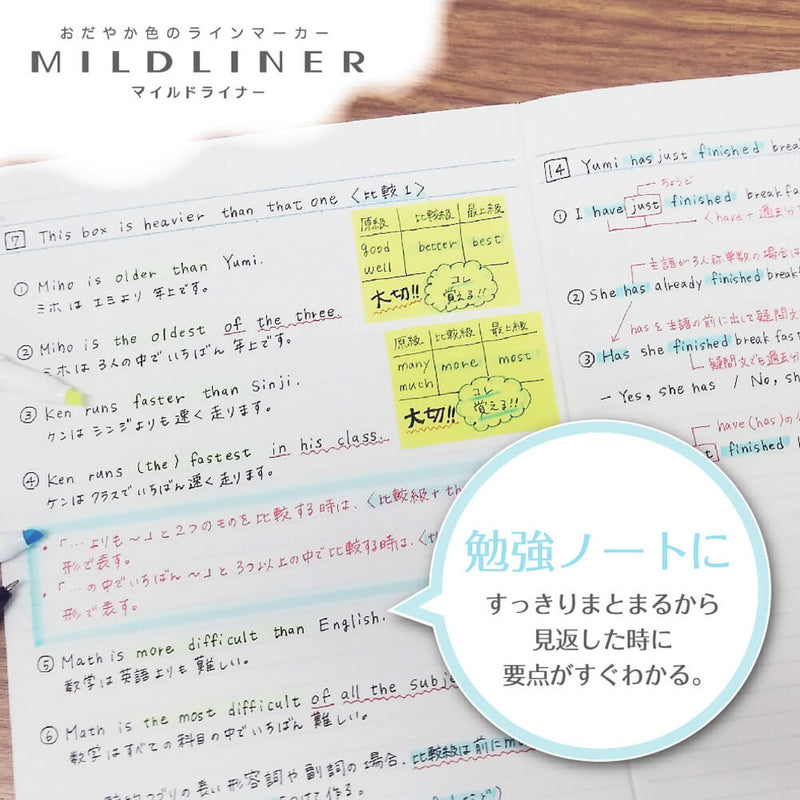 おだやか色のラインマーカー
MILDLINER
マイルドライナー
7 This box is heavier than that one 〈比較1〉
① Miho is older than Yumi.
ミホはエミより年上です。
② Miho is the oldest of the three.
ミホは3人の中でいちばん年上です。
③ Ken runs faster than Sinji.
ケンはシンジよりも速く走ります。
④ Ken runs (the) fastest in his class.
ケンはクラスでいちばん速く走ります。
・「…よりも〜」と2つのものを比較する時は、〈比較級+th
形で表す。
・「…の中でいちばん〜」と3つ以上の中で比較する時は、〈th
形で表す。
⑤ Math is more difficult than English.
数学は英語よりも難しい。
⑥ Math is the most difficult of all the subje
数学はすべての科目の中でいちばん難しい。
の長い形容詞や副詞の場合、比較級は前にmo
て作る。
原級 比較級 最上級
good better best
well
大切!! コレ
覚える!!
原級 比較級 最上級
many more most
much
大切!! コレ
覚える!!
14 Yumi has just finished brea
ちょうど
① I have just finished breakfa
〈have+過去分
主語が3人称単数の場合は
② She has already finished break
hasを主語の前に出して疑問文
③ Has she finished breakfast
疑問文でも過去分
- Yes, she has / No, sh
have(has)の
finished b
勉強ノートに
すっきりまとまるから
見返した時に
要点がすぐわかる。